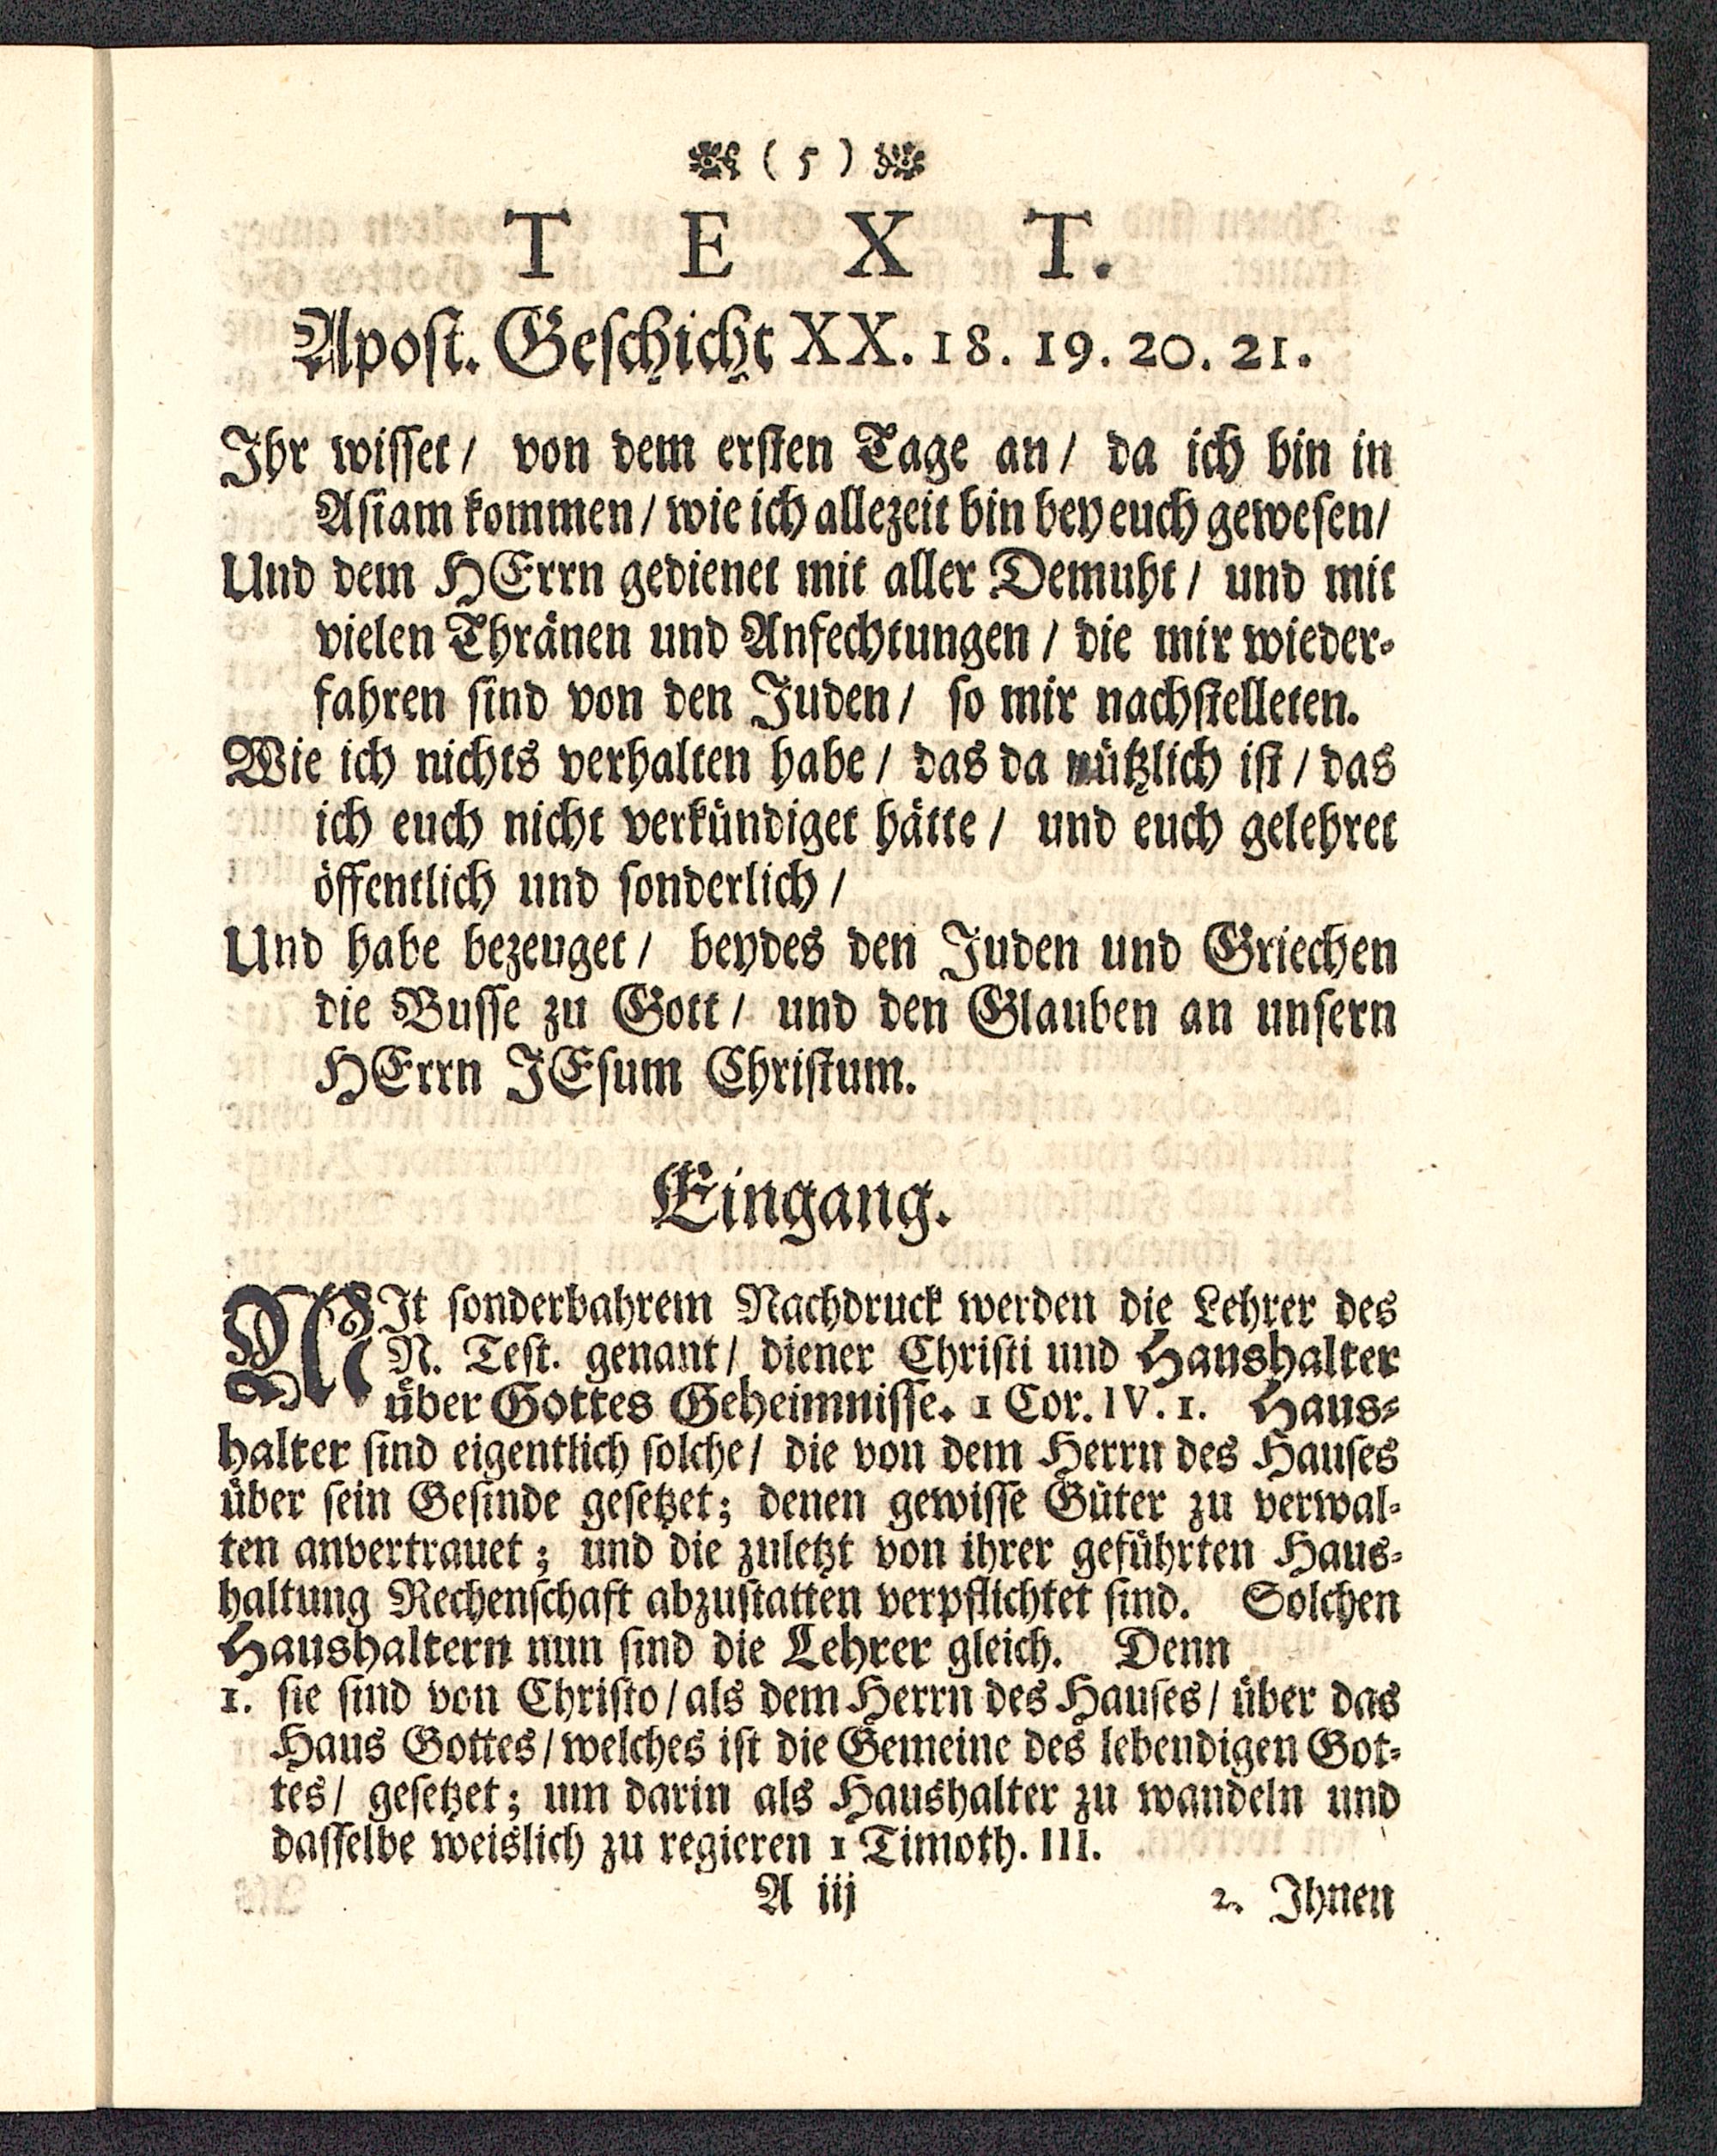 ( 5 )
T E X T.
Apost. Geschicht XX. 18. 19. 20. 21.
Ihr wisset / von dem ersten Tage an / da ich bin in
Asiam kommen / wie ich allezeit bin bey euch gewesen /
Und dem HErrn gedienet mit aller Demuht / und mit
vielen Thränen und Anfechtungen / die mir wieder-
fahren sind von den Juden / so mir nachstelleten.
Wie ich nichts verhalten habe / das da nützlich ist / das
ich euch nicht verkündiget hätte / und euch gelehret
öffentlich und sonderlich /
Und habe bezeuget / beydes den Juden und Griechen
die Busse zu Gott / und den Glauben an unsern
HErrn JEsum Christum.
Eingang.
MIt sonderbahrem Nachdruck werden die Lehrer des
N. Test. genant / diener Christi und Haushalter
über Gottes Geheimnisse. 1 Cor. IV. 1. Haus-
halter sind eigentlich solche / die von dem Herrn des Hauses
über sein Gesinde gesetzet; denen gewisse Güter zu verwal-
ten anvertrauet; und die zuletzt von ihrer geführten Haus-
haltung Rechenschaft abzustatten verpflichtet sind. Solchen
Haushaltern nun sind die Lehrer gleich. Denn
1. sie sind von Christo / als dem Herrn des Hauses / über das
Haus Gottes / welches ist die Gemeine des lebendigen Got-
tes / gesetzet; um darin als Haushalter zu wandeln und
dasselbe weislich zu regieren 1 Timoth. III.
A iij 2. Ihnen